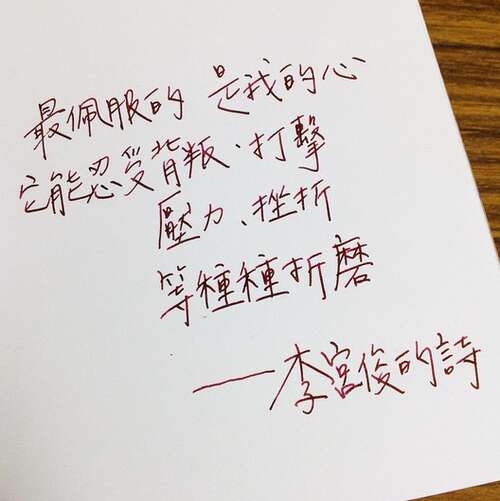 最佩服的 是我的心
它能忍受背叛、打擊
壓力、挫折
等種種折磨
——李宮俊的詩